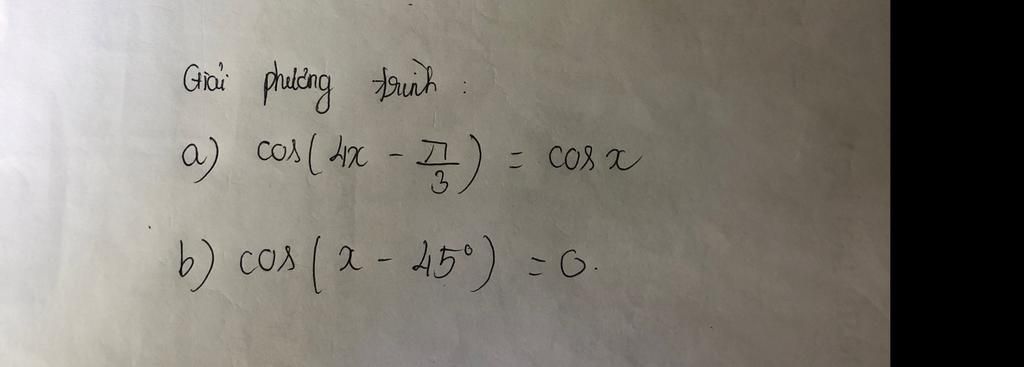 Giải phương trình :
a) cos( 4x - π/3 ) = cos x
b) cos( x - 45° ) = 0.